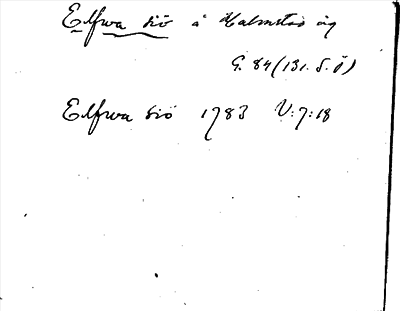 Elfwa siö å Halmstad äg
G. 84 (131. S. Ö)
Elfwa Siö 1783 V:7:18